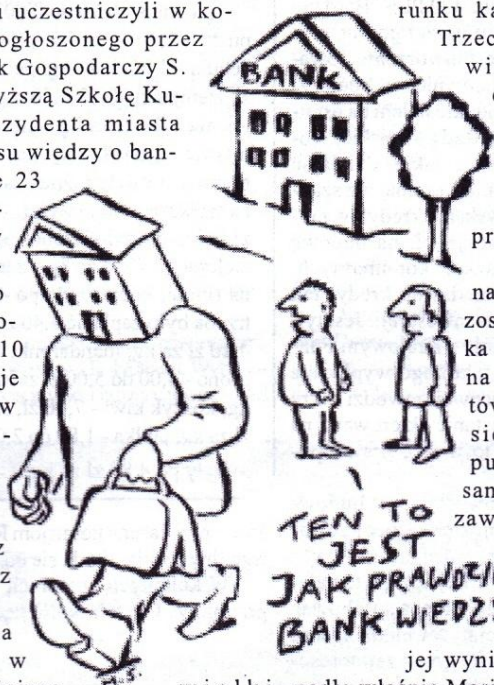 uczestniczyli w ko-
ogłoszonego przez
k Gospodarczy S.
yższą Szkołę Ku-
zydenta miasta
su wiedzy o ban-
e 23
o-
10
je
w
z
z
a
w
BANK
runku ka
Trzec
wi
pr
na
zos
ka
na
tów
się
pu
san
zaw
TEN TO
JEST
JAK PRAWDZI
BANK WIEDZY
jej wyni